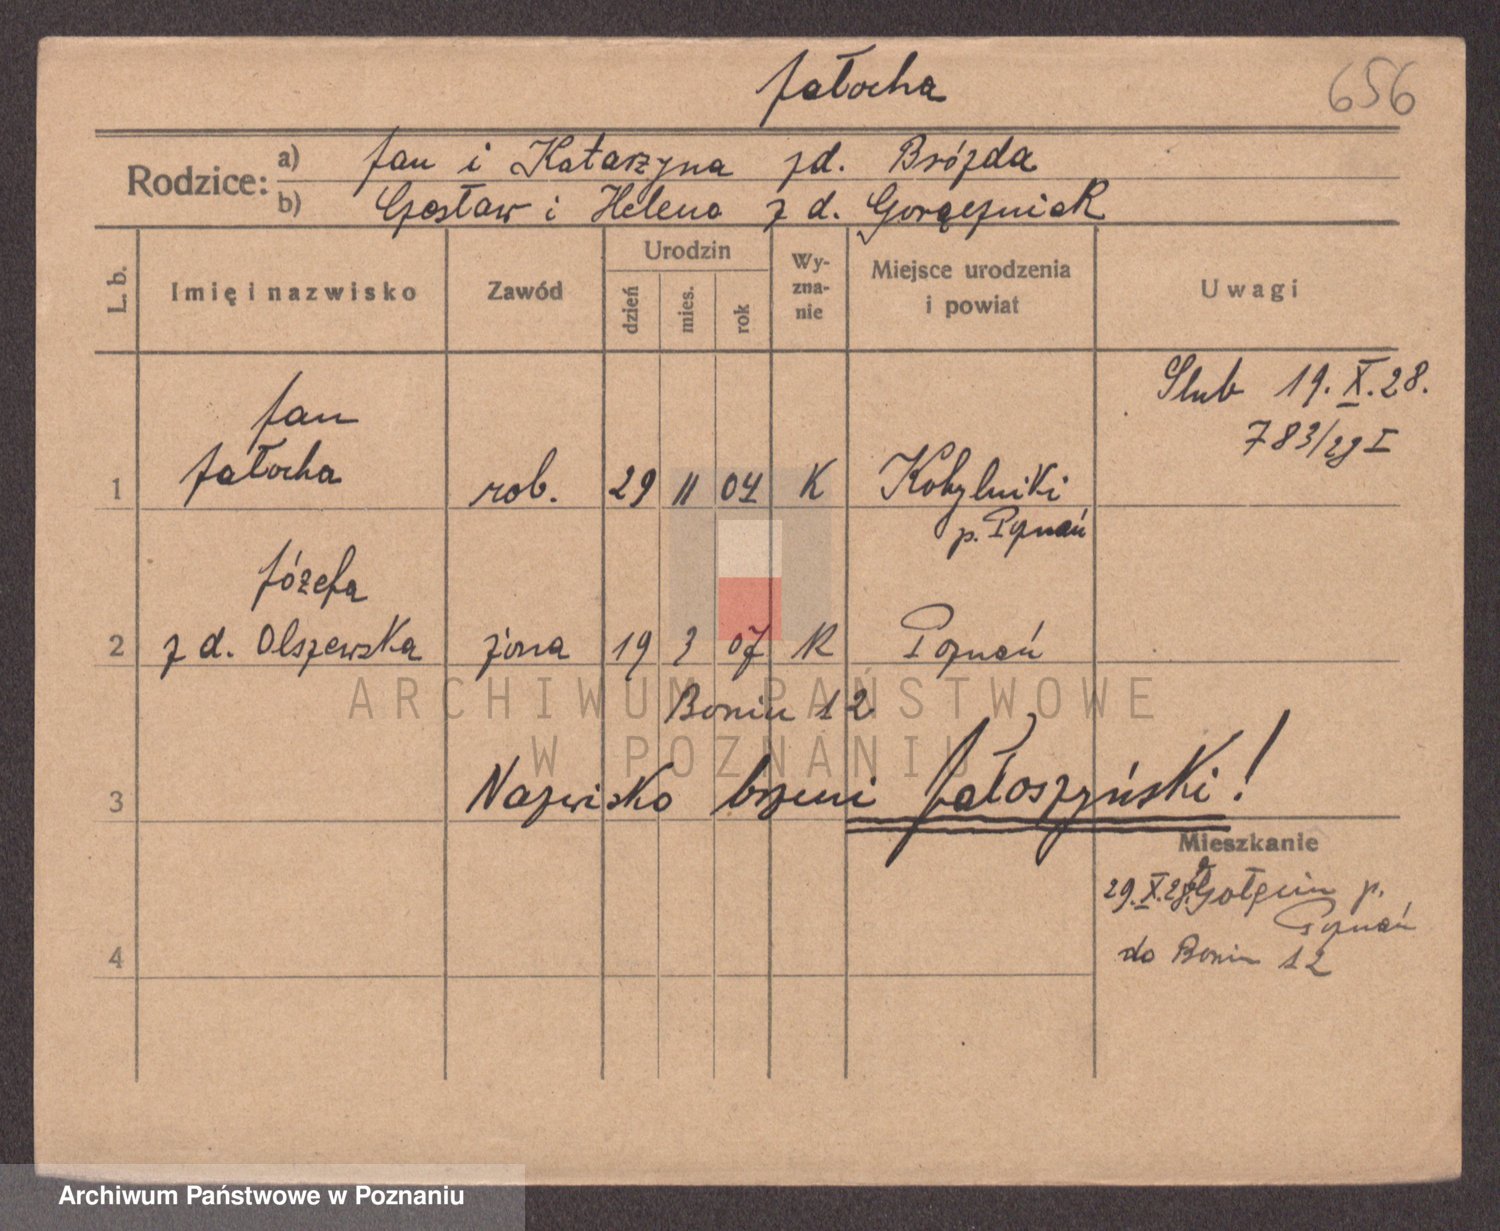 Jałocha
656
Rodzice:
a) Jan i Katarzyna zd. Brózda
b) Czesław i Helena z d. Gorączniak
L. b.
Imię i nazwisko
Zawód
Urodzin
dzień
mies.
rok
Wy-
zna-
nie
Miejsce urodzenia
i powiat
Uwagi
Ślub 19. X. 28.
783/28 I
1
Jan
Jałocha
rob.
29 11 04
K
Kobylniki
p. Poznań
2
Józefa
z d. Olszewska
żona
19 3 07
K
Poznań
Bonin 12
3
Nazwisko brzmi Jałoszyński!
Mieszkanie
29. X. 28. Gołęcin p.
Poznań
do Bonin 12
4
ARCHIWUM PAŃSTWOWE
W POZNANIU
Archiwum Państwowe w Poznaniu